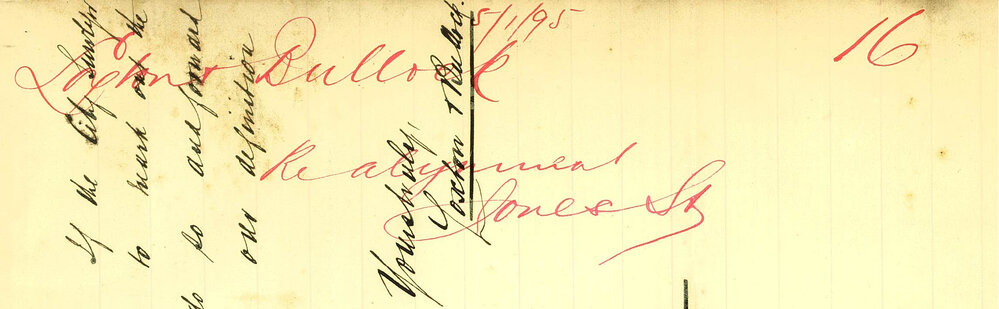 5/1/95
16
Loxton & Bullock
Re alignment
Jones St
If the City Surveyor
to mark out the
do so and forward
our definition
Yours truly,
Loxton & Bullock